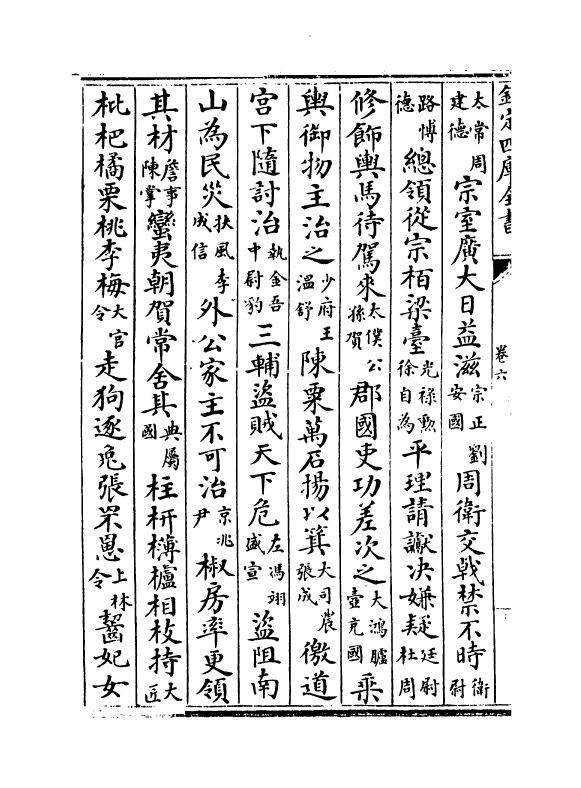 欽定四庫全書 卷六
太常周建德宗室廣大日益滋宗正劉安國周衛交戟禁不時衛尉
路愽德總領從宗栢梁臺光祿勲徐自為平理請讞决嫌疑廷尉杜周
修飾輿馬待駕來太僕公孫賀郡國吏功差次之大鴻臚壺充國乘
輿御物主治之少府王温舒陳粟萬石揚以箕大司農張成徼道
宫下隨討治執金吾中尉豹三輔盜賊天下危左馮翊盛宣盜阻南
山為民災扶風李成信外公家主不可治京兆尹椒房率更領
其材詹事陳掌蠻夷朝賀常舍其典屬國柱枅欂櫨相枝持大匠
枇杷橘栗桃李梅大官令走狗逐兎張罘罳上林令齧妃女